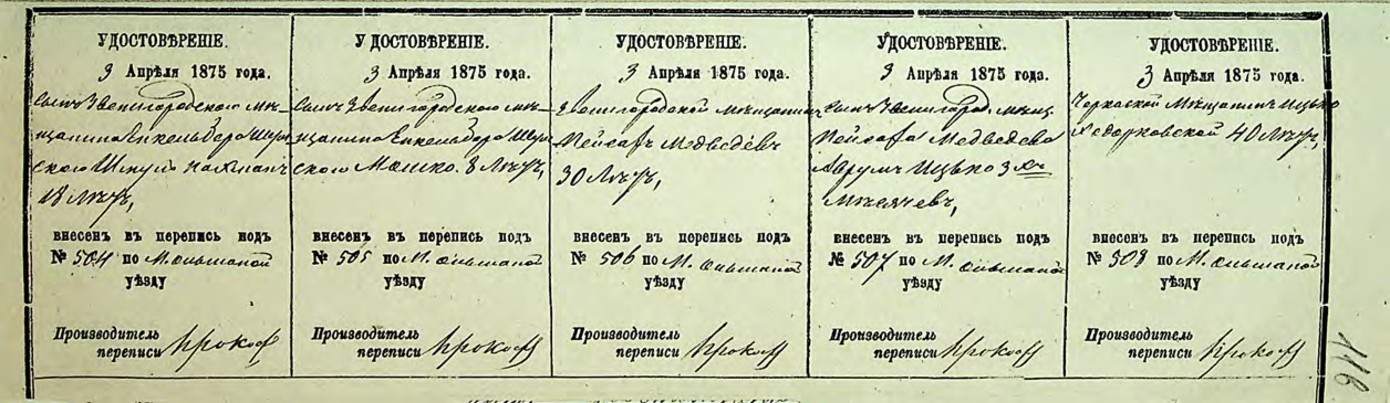 УДОСТОВѢРЕНІЕ.
3 Апрѣля 1875 года.
Сынъ Звенигородского мѣ-
щанина
18 лѣтъ,
внесенъ въ перепись подъ
№ 504 по М. Ольшаной
уѣзду
Производитель
переписи
УДОСТОВѢРЕНІЕ.
3 Апрѣля 1875 года.
Сынъ Звенигородского мѣ-
щанина
ского Мошко. 8 лѣтъ,
внесенъ въ перепись подъ
№ 505 по М. Ольшаной
уѣзду
Производитель
переписи
УДОСТОВѢРЕНІЕ.
3 Апрѣля 1875 года.
Звенигородской мѣщанинъ
Пейсахъ Медведевъ
30 лѣтъ,
внесенъ въ перепись подъ
№ 506 по М. Ольшаной
уѣзду
Производитель
переписи
УДОСТОВѢРЕНІЕ.
3 Апрѣля 1875 года.
Сынъ Звенигород. мѣщ.
Пейсаха Медведева
Аврумъ Ицько 3 хъ
мѣсячевъ,
внесенъ въ перепись подъ
№ 507 по М. Ольшаной
уѣзду
Производитель
переписи
УДОСТОВѢРЕНІЕ.
3 Апрѣля 1875 года.
Черкаской мѣщанинъ Ицько
Ходорковской 40 лѣтъ,
внесенъ въ перепись подъ
№ 508 по М. Ольшаной
уѣзду
Производитель
переписи
118